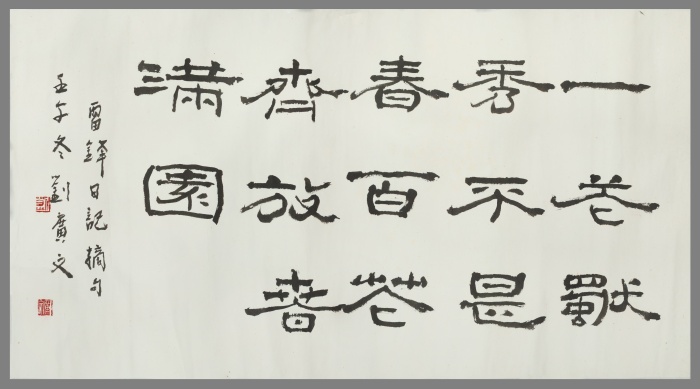 一花獨
秀不是
春百花
齊放春
滿園
雷鋒日記摘句
壬午冬劉廣文